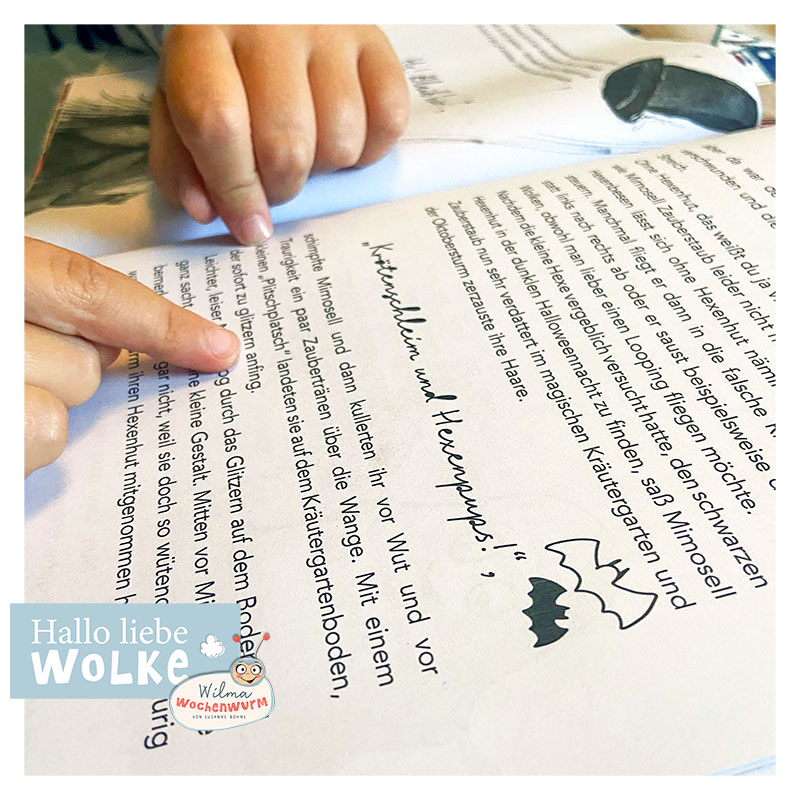 aber da war
verschwunden und die
Streich.
Ohne Hexenhut, das weißt du ja
wie Mimosell Zauberstaub leider nicht
Hexenbesen lässt sich ohne Hexenhut
steuern. Manchmal fliegt er dann in die falsche
statt links nach rechts ab oder er saust beispielsweise
Wolken, obwohl man lieber einen Looping fliegen möchte.
Nachdem die kleine Hexe vergeblich versucht hatte, den schwarzen
Hexenhut in der dunklen Halloweennacht zu finden, saß Mimosell
Zauberstaub nun sehr verdattert im magischen Kräutergarten und
der Oktobersturm zerzauste ihre Haare.
„Krötenschleim und Hexenpups!“,
schimpfte Mimosell und dann kullerten ihr vor Wut und vor
Traurigkeit ein paar Zaubertränen über die Wange. Mit einem
kleinen „Plitschplatsch“ landeten sie auf dem Kräutergartenboden,
der sofort zu glitzern anfing.
Leichter, leiser durch das Glitzern auf dem
ganz sacht kleine Gestalt. Mitten vor
gar nicht, weil sie doch so
ihren Hexenhut mitgenommen
Hallo liebe
WOLKE
Wilma
WOCHENWURM
VON SUSANNE BOHNE